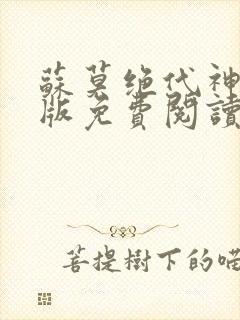 蘇莫绝代神
版免費閱讀
菩提樹下的喵